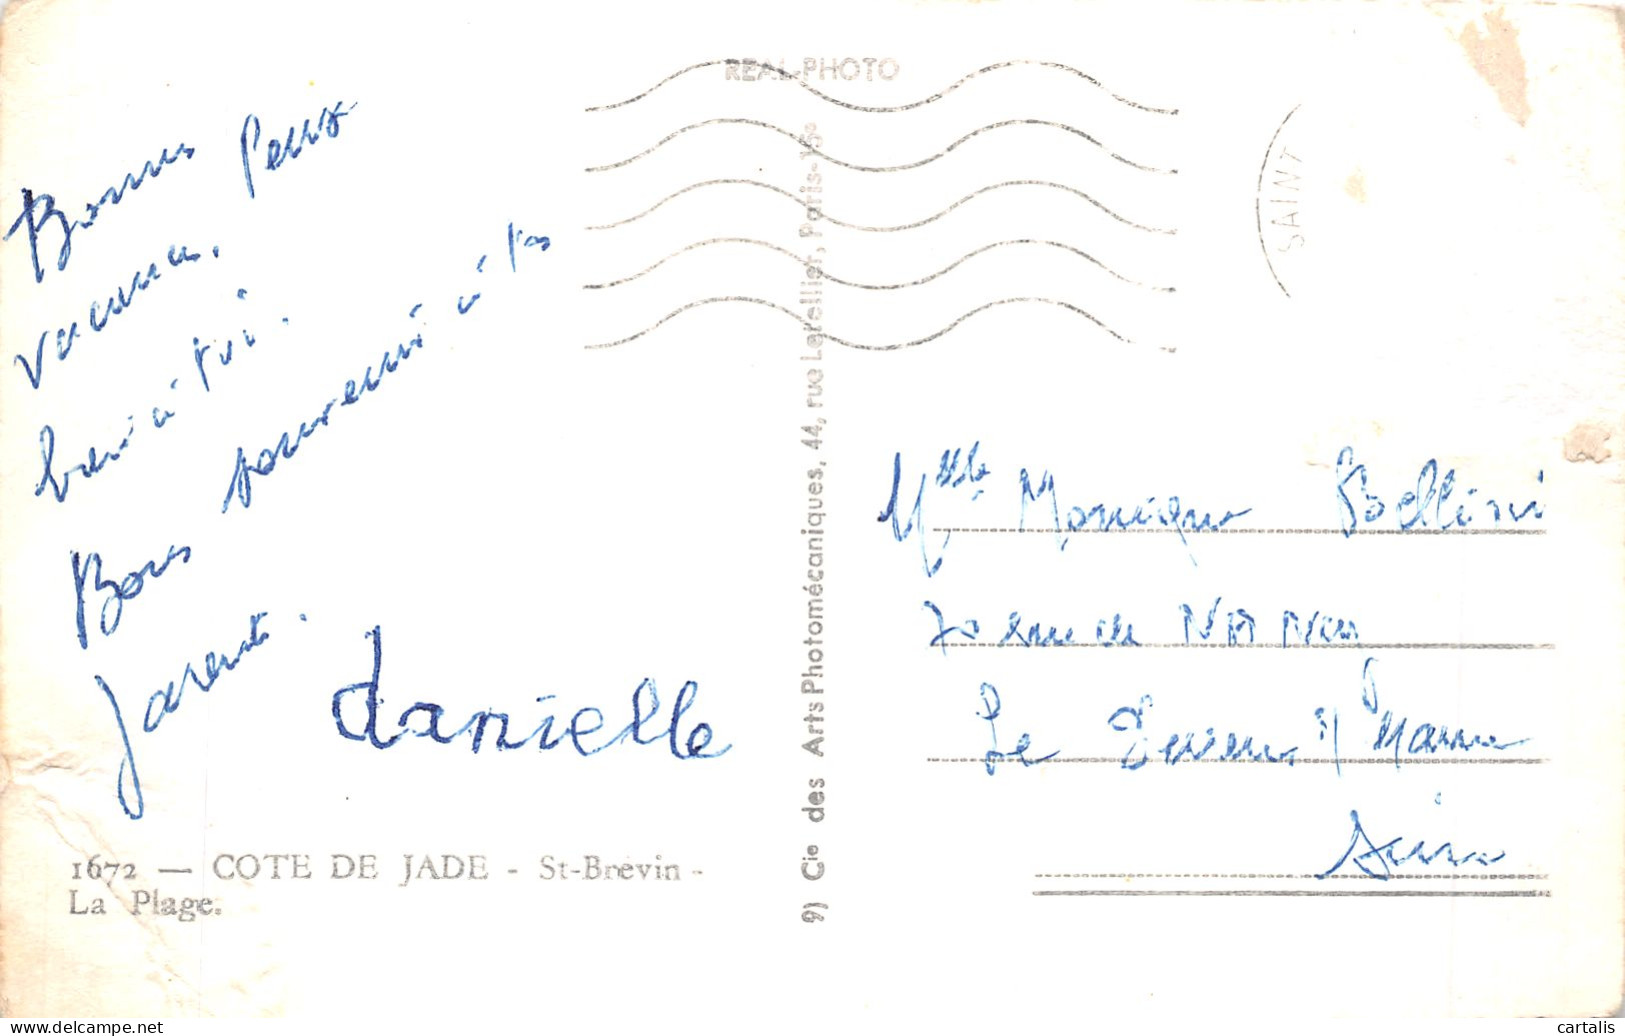 REAL-PHOTO
SAINT
Bonnes
vacances.
à toi.
Bons souvenirs à tes
parents.
danielle
1672 — COTE DE JADE - St-Brevin -
La Plage.
9) Cie des Arts Photomécaniques, 44, rue Letellier, Paris-15e
Melle Monique Bellini
Le Perreux s/ Marne
Seine
cartalis